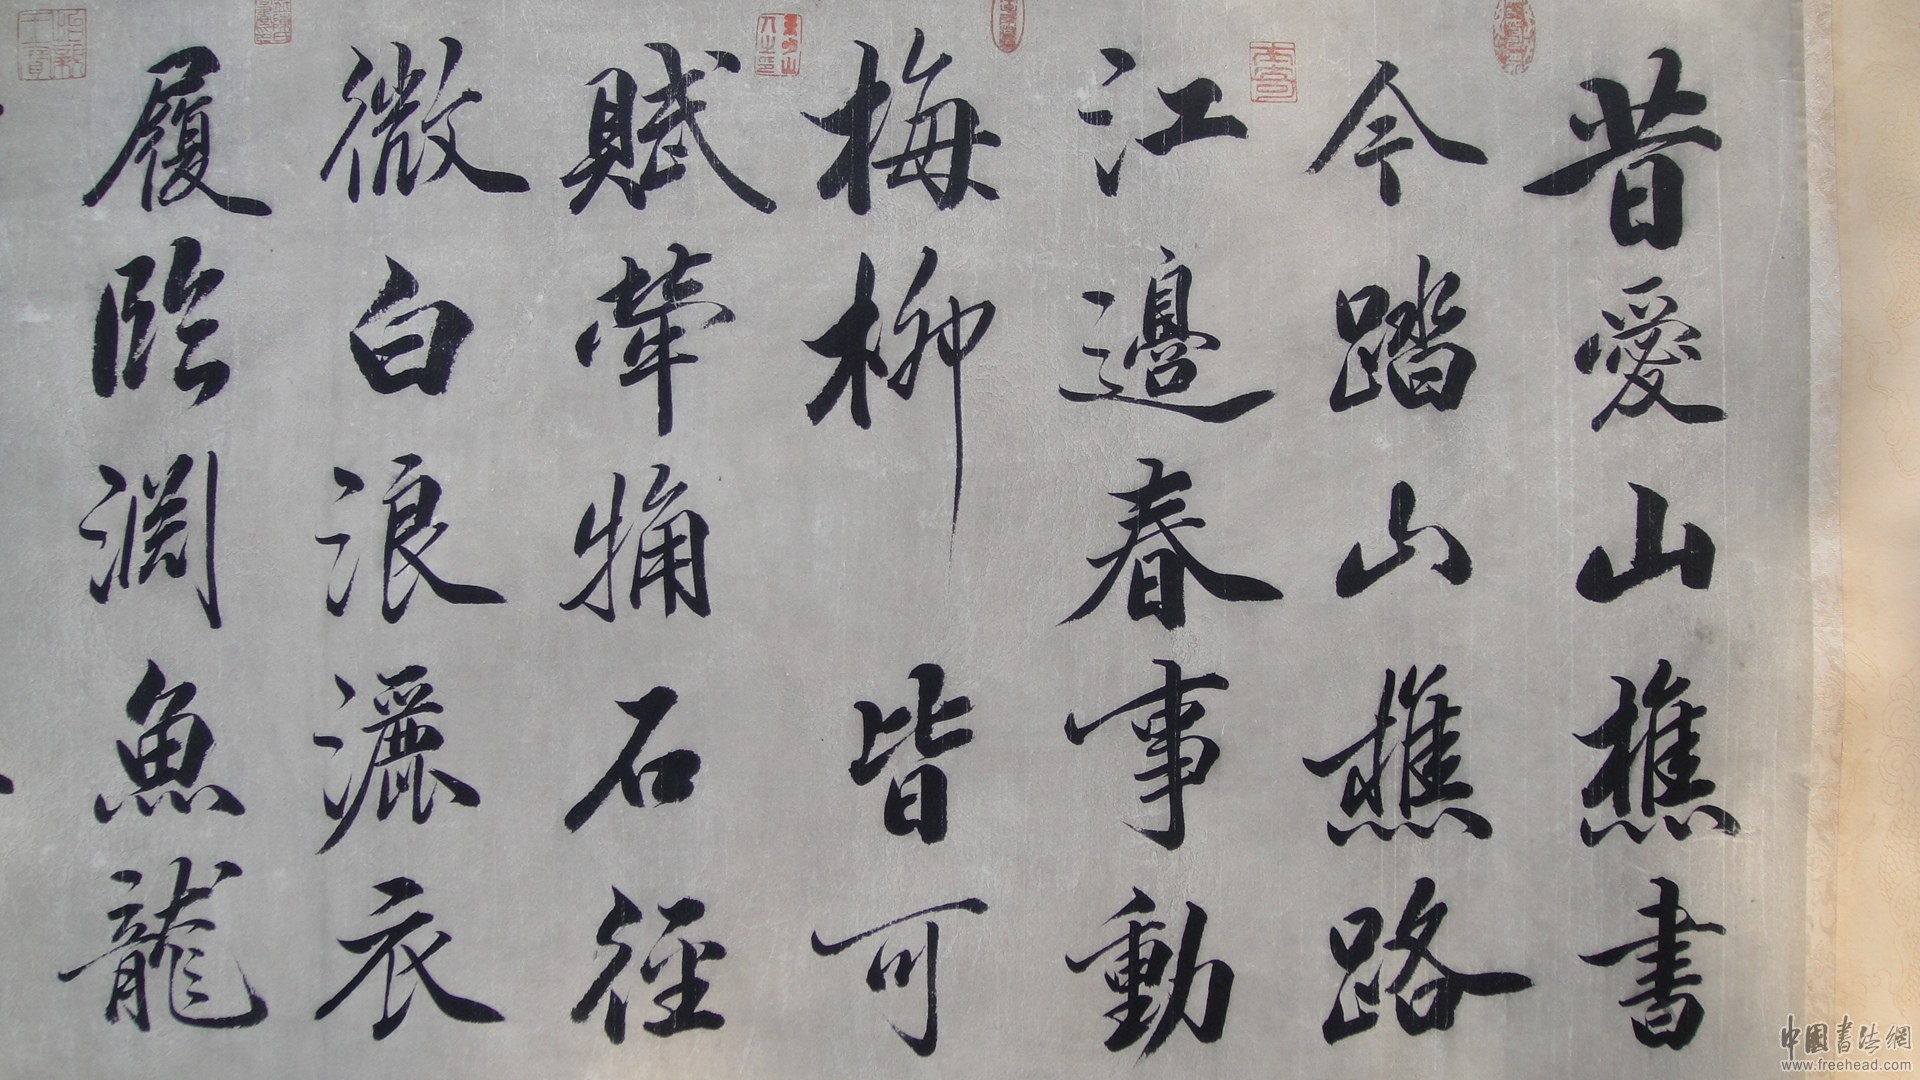 昔愛山樵書
今踏山樵路
江邊春事動
梅柳皆可
賦牽牖石徑
微白浪灑衣
履臨淵魚龍
中國書法網
www.freehead.com